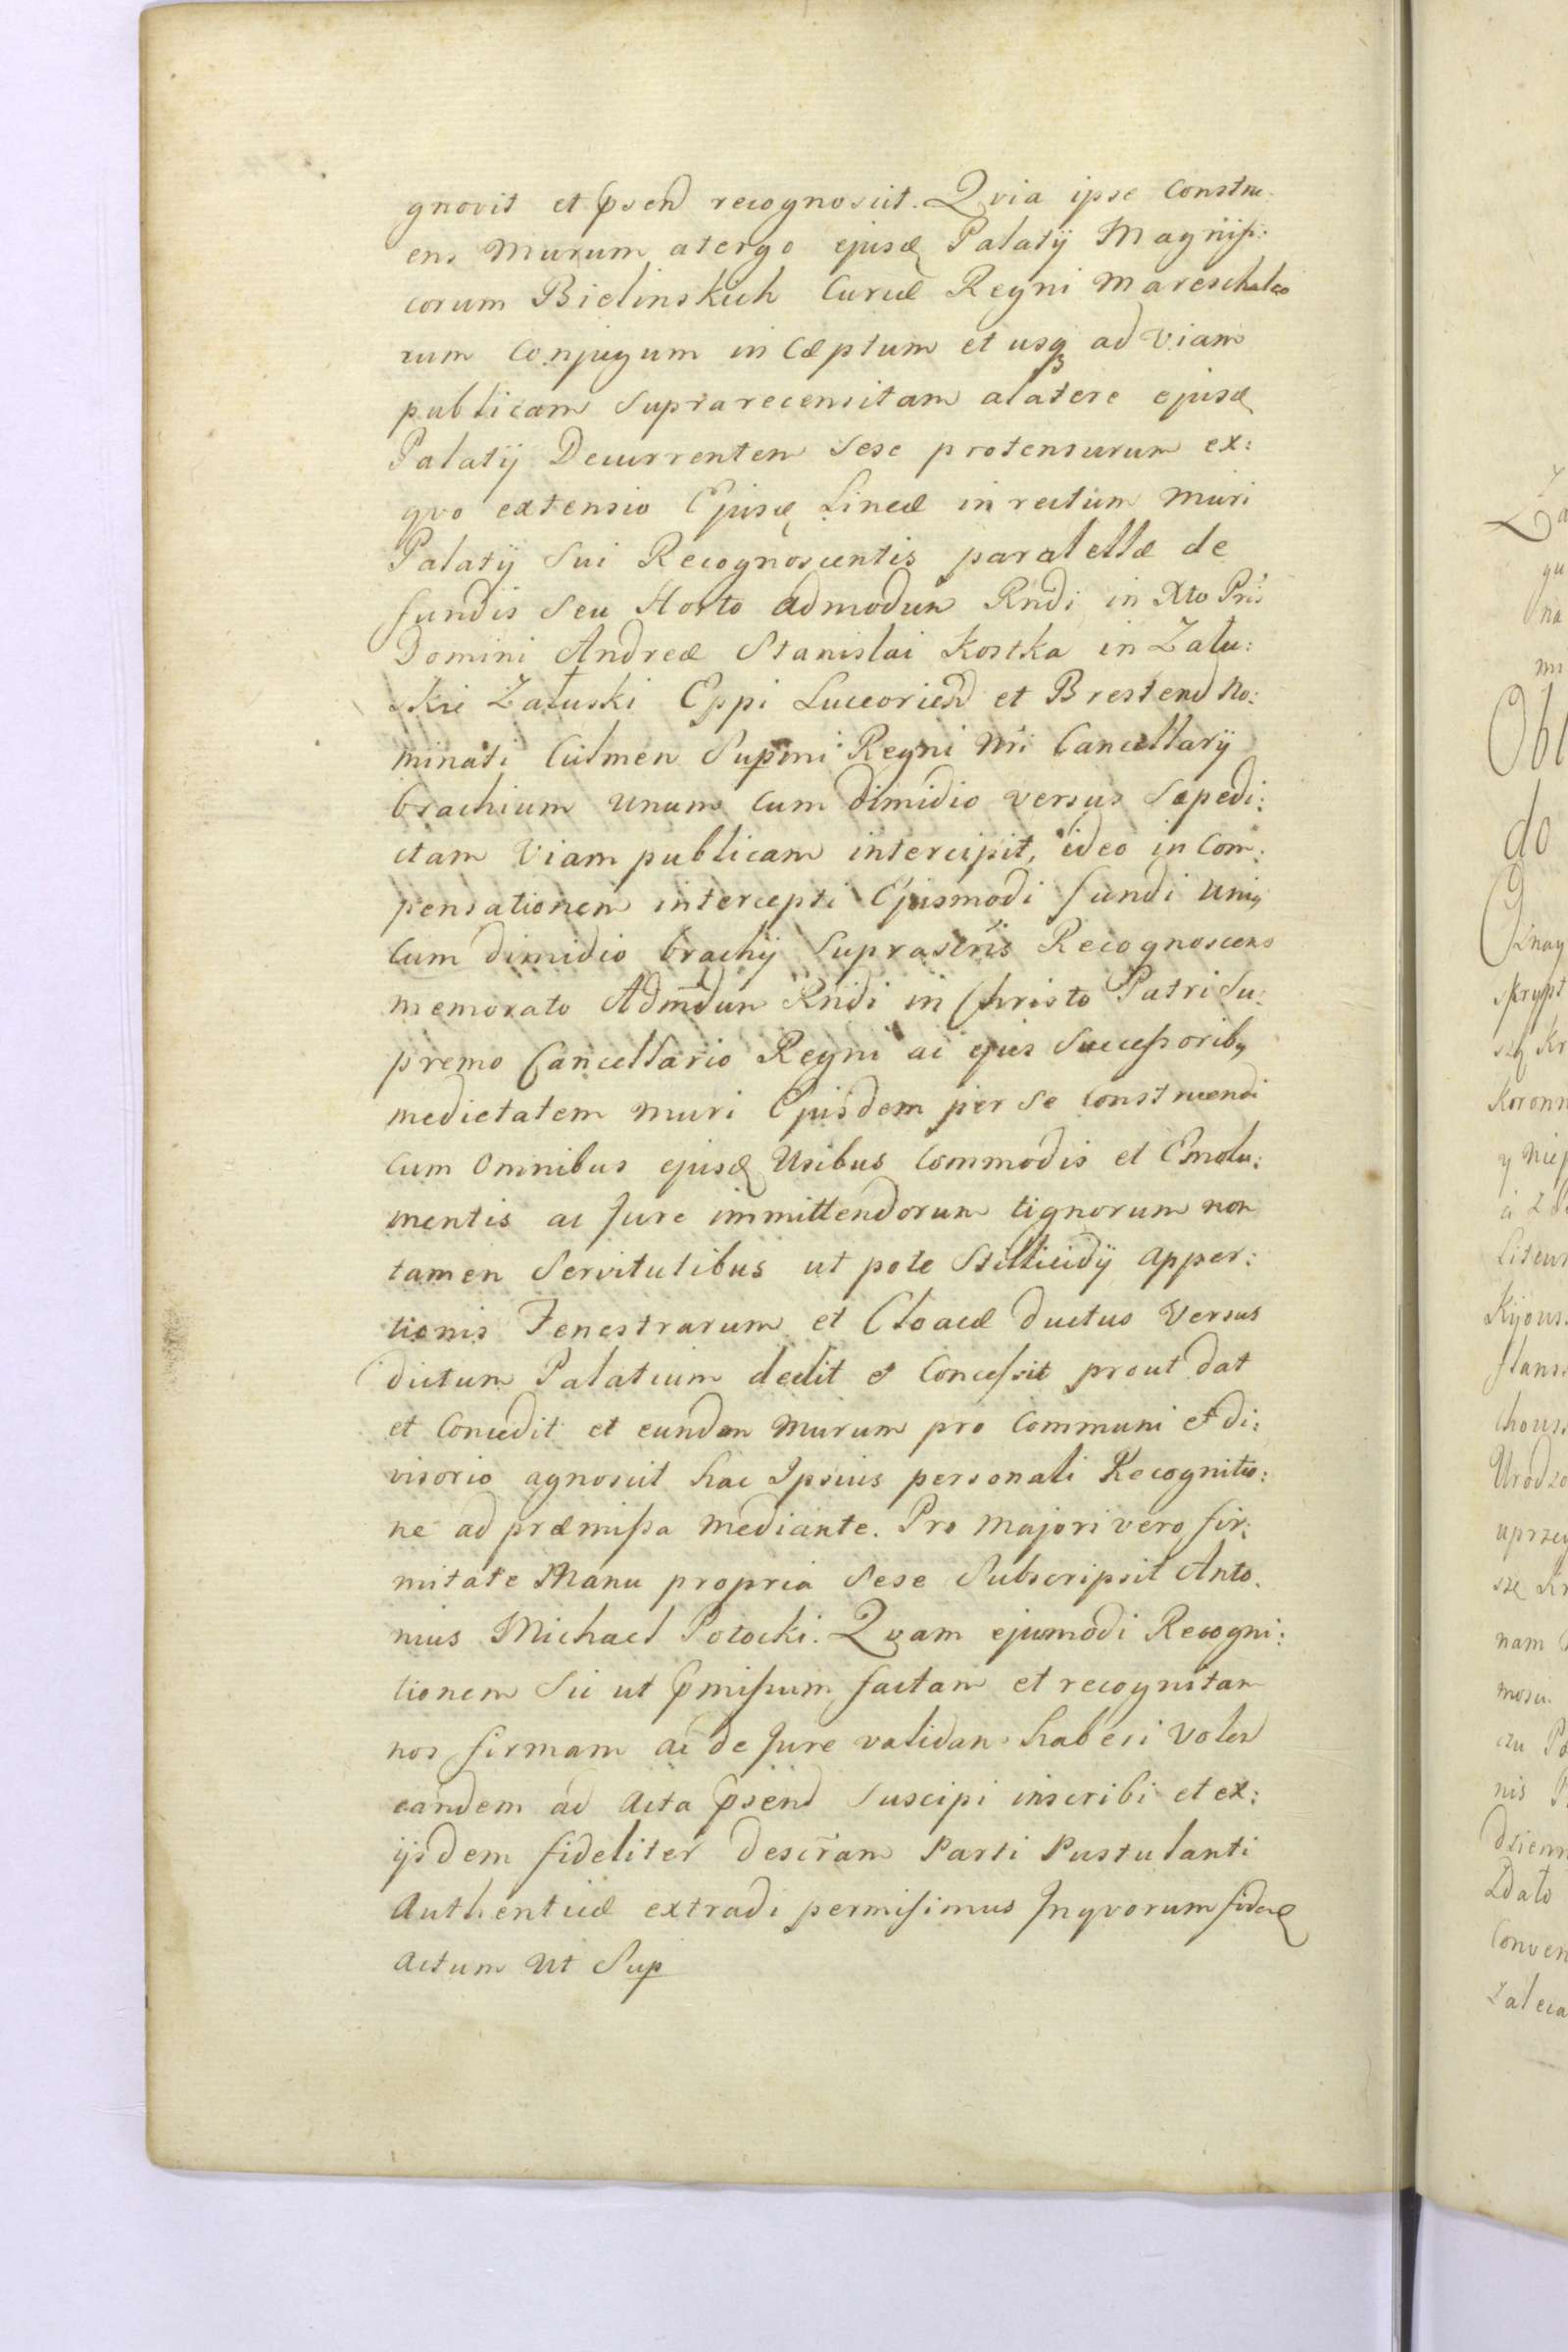 gnovit et psend recognoscit. Qvia ipse Constru
ens Murum atergo ejusd Palatÿ Magnifi:
corum Bielinskich Curiæ Regni Mareschalco
rum Conjugum in Cæptum et usq ad Viam
publicam Suprarecensitam alatere ejusd
Palatÿ Decurrentem Sese protensurum ex:
qvo extensio Ejusd Lineæ in rectum Muri
Palatÿ Sui Recognoscentis paralellæ de
fundis Seu Horto admodum Rndi in Xto Pris
Domini Andreæ Stanislai Kostka in Zalu:
skie Załuski Eppi Luceorien et Brestend No:
minati Culmen Supmi Regni Mri Cancellarÿ
brachium unum Cum dimidio versus Sæpedi:
ctam Viam publicam intercipit, ideo in Com:
pensationem intercepti Ejusmodi fundi unig
Cum dimidio brachÿ Suprascris Recognoscens
memorato Admdum Rndi in Christo Patri Su:
premo Cancellario Regni ac ejus Successoribg
medietatem muri Ejusdem per Se Construendi
Cum Omnibus ejusd Usibus Commodis et Emolu:
mentis ac Jure immittendorum tignorum non
tamen Servitutibus ut pote Stillicidÿ apper:
tionis Fenestrarum et Cloacæ ductus Versus
dictum Palatium dedit et Concessit prout dat
et Concedit et eundem Murum pro Communi et di:
visorio agnoscit hac Ipsius personali Recognitio:
ne ad præmissa Mediante. Pro Majori vero fir:
mitate Manu propria Sese Subscripsit Anto.
nius Michael Potocki. Qvam ejusmodi Recogni:
tionem Sic ut pmissum factam et recognitam
nos firmam ac de Jure validam haberi Volen
eandem ad Acta psend Suscipi inscribi et ex:
ijsdem fideliter descram Parti Pustulanti
Authenticæ extradi permisimus Inqvorum fidem
Actum Ut Sup